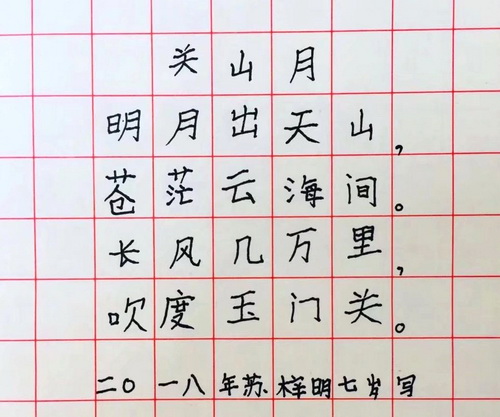 关山月
明月出天山，
苍茫云海间。
长风几万里，
吹度玉门关。
二〇一八年苏梓明七岁写